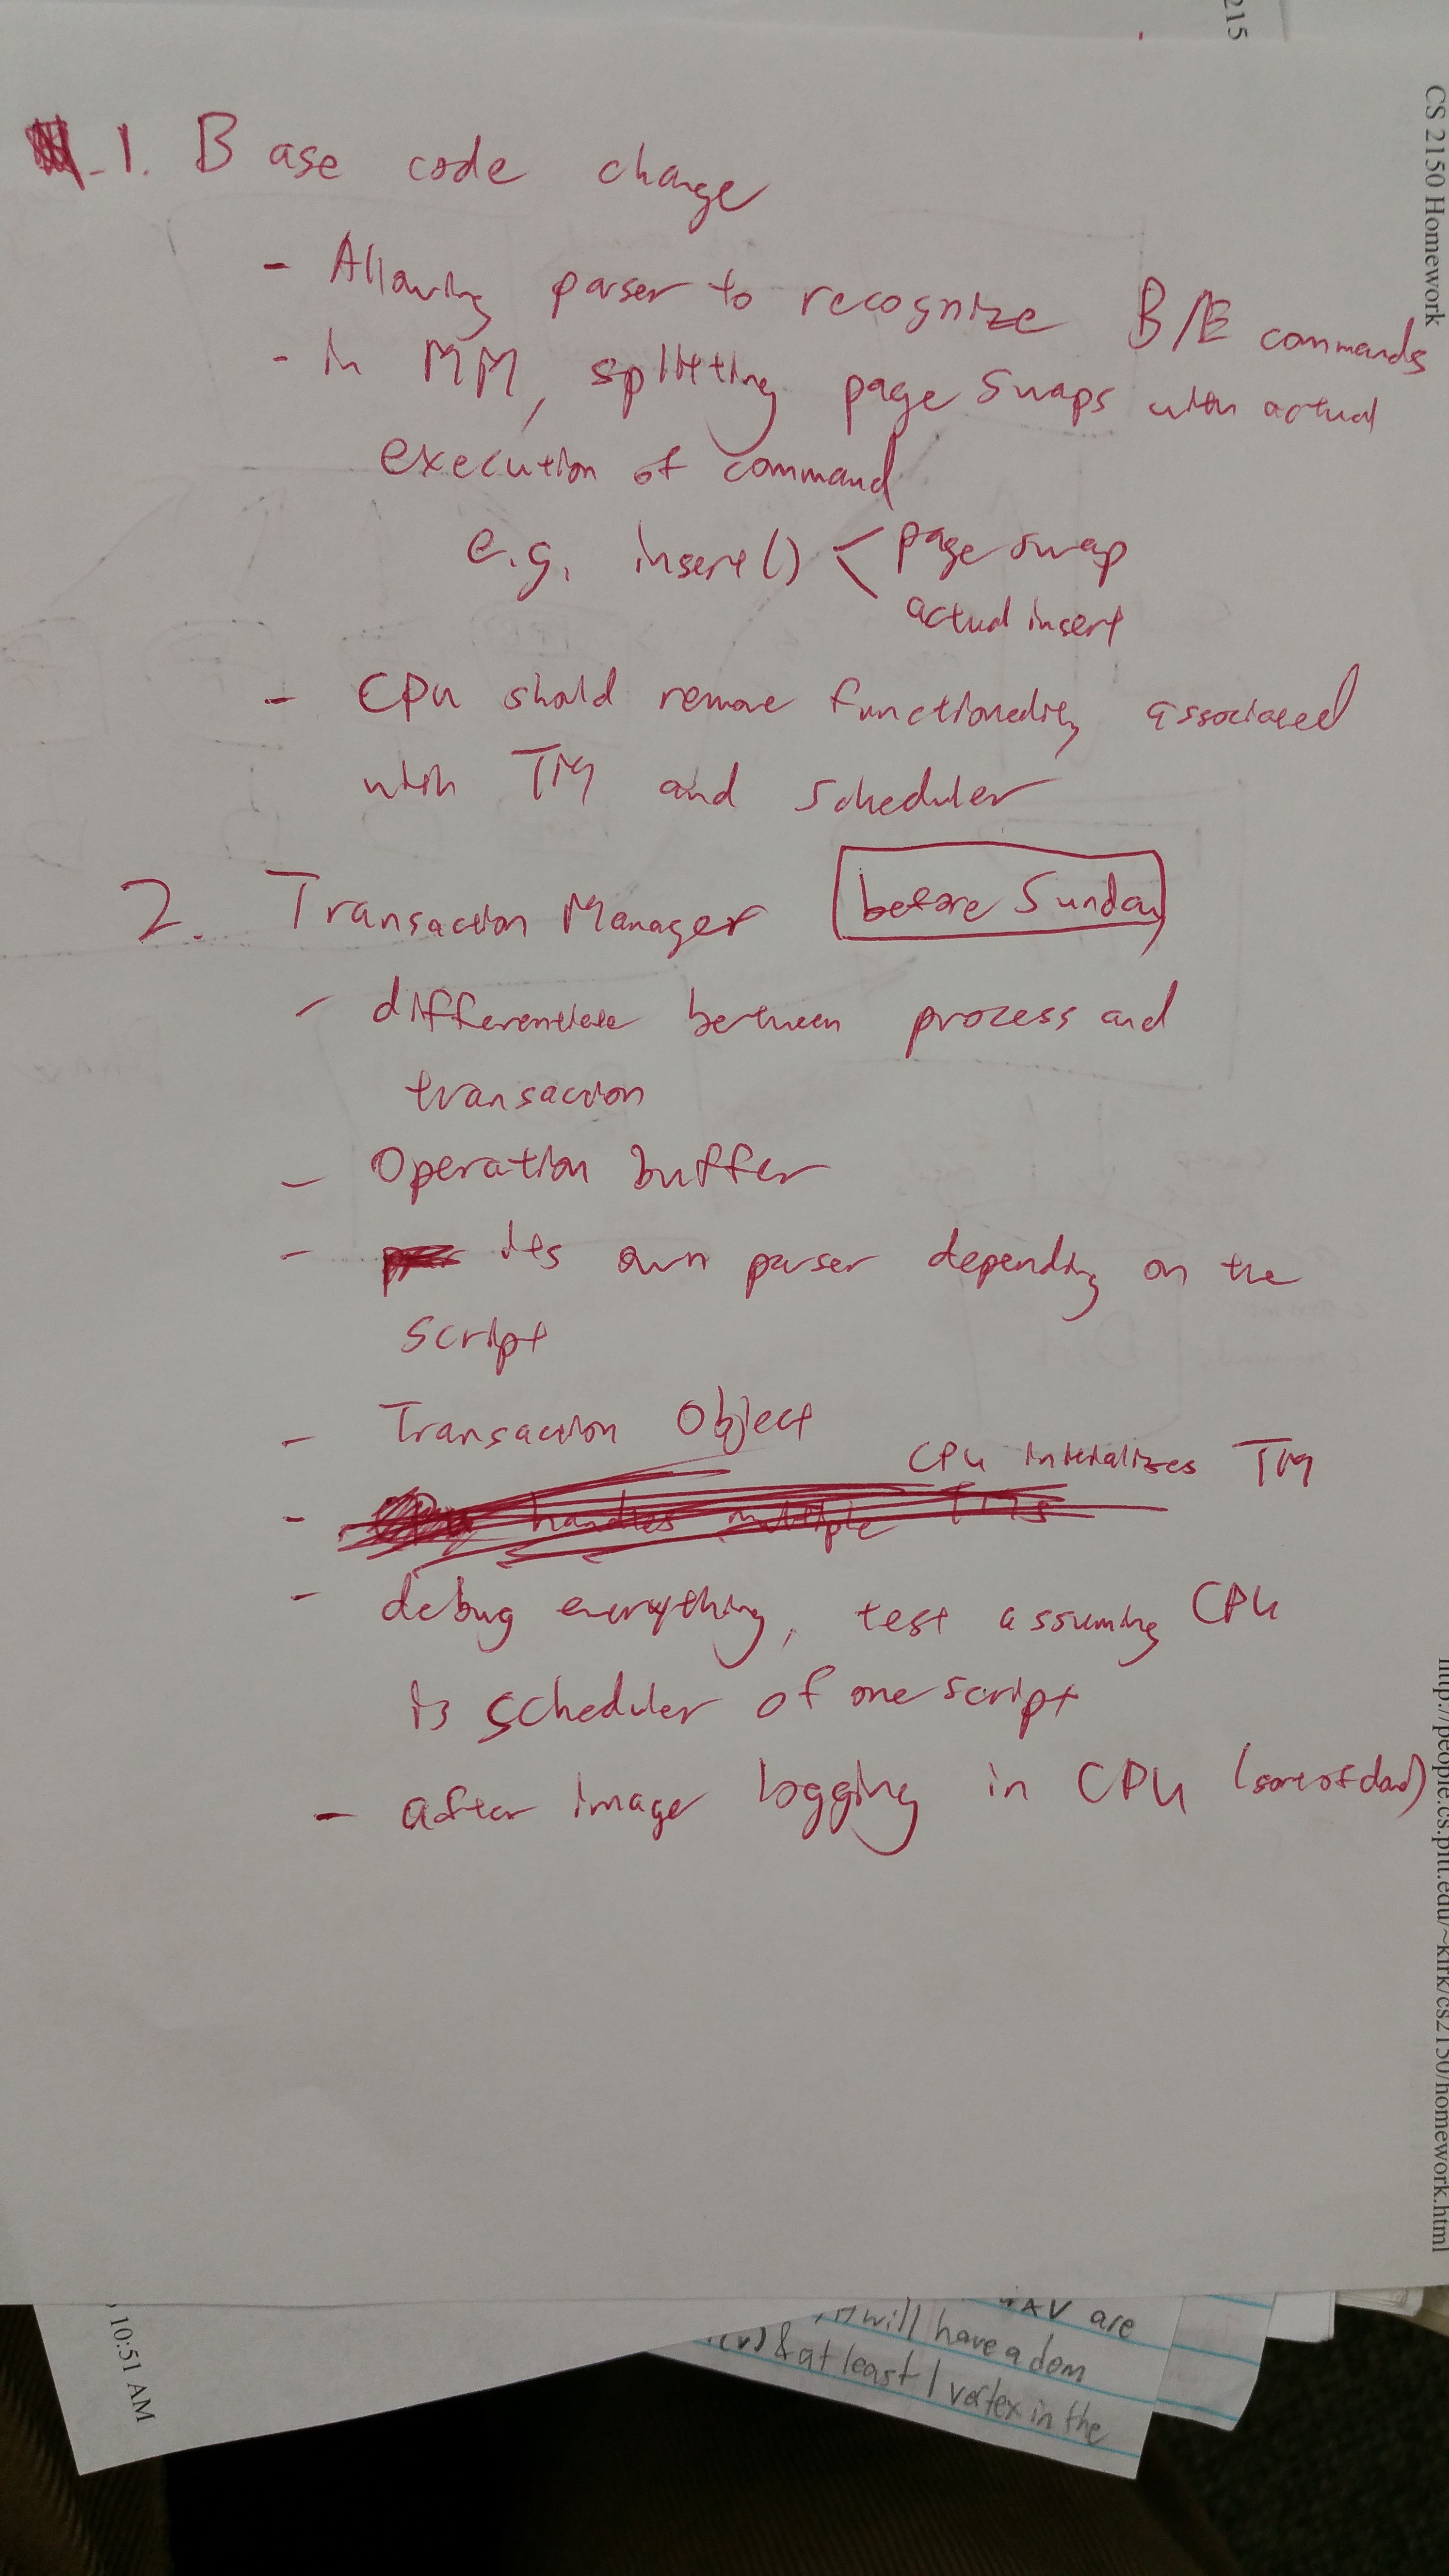 1. Base code change
- Allowing parser to recognize B/E commands
- in MM, splitting page swaps with actual
execution of command
e.g. insert() < page swap
actual insert
- CPU should remove functionality associated
with TM and scheduler
2. Transaction Manager before Sunday
- differentiate between process and
transaction
- Operation buffer
- its own parser depending on the
script
- Transaction Object
CPU initializes TM
- handles multiple TMs
- debug everything, test assuming CPU
is scheduler of one script
- after image logging in CPU (sort of done)
215
CS 2150 Homework
http://people.cs.pitt.edu/~kirk/cs2150/homework.html
10:51 AM
are
will have a dom
(v) & at least 1 vertex in the